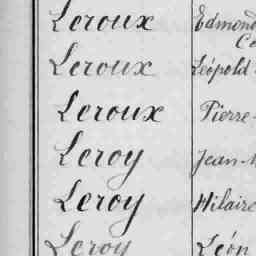 Leroux Edmond
Co
Leroux Léopold
Leroux Pierre
Leroy Jean
Leroy Hilaire
Leroy Léon